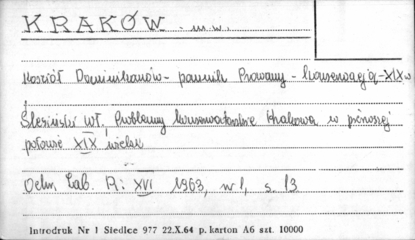 KRAKÓW - m.w.
Kościół Dominikanów - pomnik Prowany - konserwacja - XIX w
Ślesiński Wł. Problemy konserwatorskie Krakowa w pierwszej
połowie XIX wieku
Ochr. Zab. R: XVI 1963, nr 1, s. 13
Introdruk Nr 1 Siedlce 977 22.X.64 p. karton A6 szt. 10000